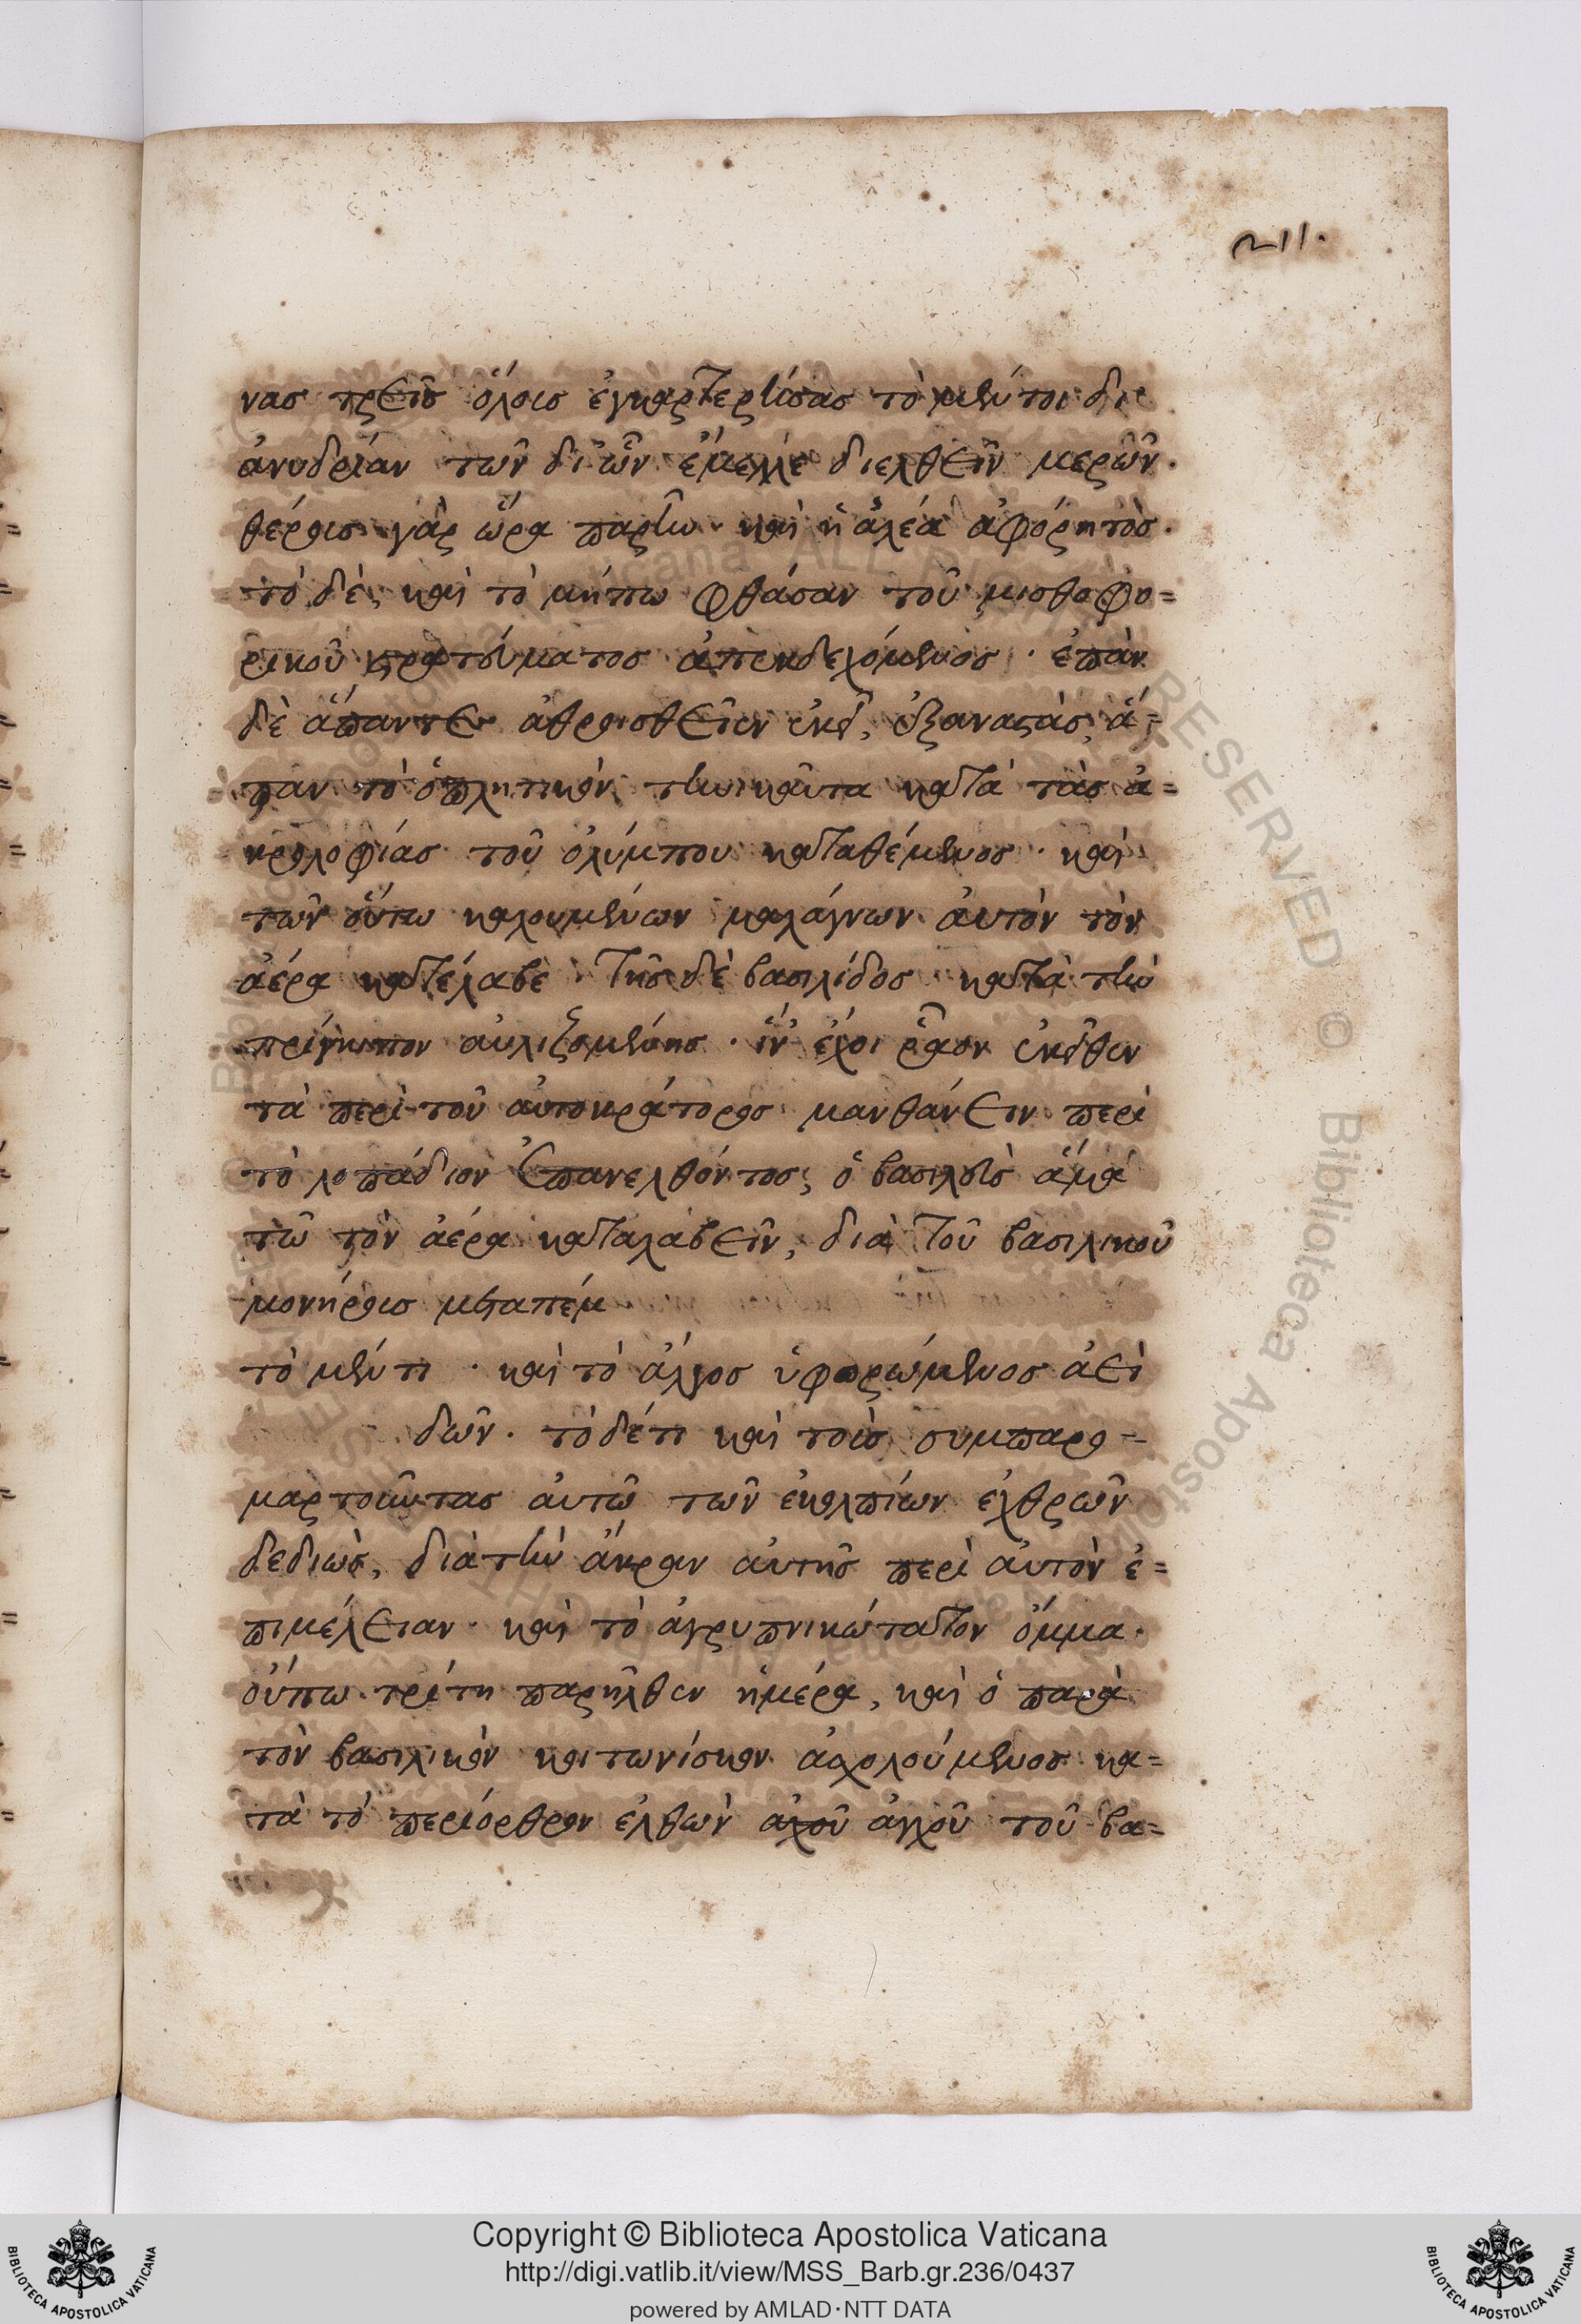 211.
νας τρεῖς ὅλοις ἐγκαρτερήσας τὸ μέντοι δι
ἀνυδρίαν τῶν δι ὧν ἔμελλε διελθεῖν μερῶν.
θέροις γὰρ ὥρα παρῆν· καὶ ἡ ἀλέα ἀφόρητος.
τὸ δὲ, καὶ τὸ μήπω φθάσαν τοῦ μισθοφο=
ρικοῦ στρατεύματος ἀπεκδεχόμενος· ἐπὰν
δὲ ἅπαντες ἀθροισθεῖεν ἐκεῖ, ἐξαναστὰς, ἅ=
παν τὸ ὁπλητικὸν τηνικαῦτα κατὰ τὰς ἀ=
κρολοφίας τοῦ ὀλύμπου καταθέμενος· καὶ
τῶν οὕτω καλουμένων μαλάγνων αὐτὸν τὸν
ἀέρα κατέλαβε· τῆς δὲ βασιλίδος κατὰ τὴν
πρίγκιπον αὐλιζομένης· ἵν ἔχοι ῥᾶον ἐκεῖθεν
τὰ περὶ τοῦ αὐτοκράτορος μανθάνειν περὶ
τὸ λοπάδιον ἐπανελθόντος, ὁ βασιλεὺς ἅμα
τῶ τὸν ἀέρα καταλαβεῖν, διὰ τοῦ βασιλικοῦ
μονήροις μεταπέμ
τὸ μέν τι · καὶ τὸ ἄλγος ὑφορώμενος ἀεὶ
δῶν. τὸ δέ τι καὶ τοὺς συμπαρο=
μαρτοῦντας αὐτῶ τῶν ἐκολπίων ἐχθρῶν
δεδιὼς, διὰ τὴν ἄκραν αὐτῆς περὶ αὐτὸν ἐ=
πιμέλειαν· καὶ τὸ ἀγρυπνικώτατον ὄμμα.
οὔπω τρίτη παρῆλθεν ἡμέρα, καὶ ὁ παρὰ
τὸν βασιλικὸν κοιτωνίσκον ἀσχολούμενος κα=
τὰ τὸ περίορθρον ἐλθὼν ἀγχοῦ τοῦ βα=
Copyright © Biblioteca Apostolica Vaticana
http://digi.vatlib.it/view/MSS_Barb.gr.236/0437
powered by AMLAD·NTT DATA
BIBLIOTECA APOSTOLICA VATICANA
BIBLIOTECA APOSTOLICA VATICANA